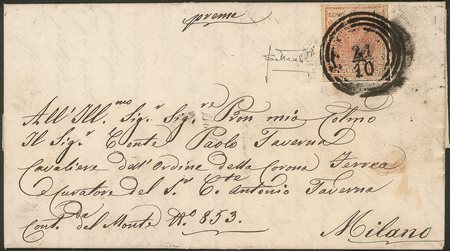 preme
21
10
All'Ill.mo Sig.r Sig.re Pron mio Colmo
Il Sig.r Conte Paolo Taverna
Cavaliere dell'Ordine della Corona Ferrea
e Curatore del S.r C.te Antonio Taverna
Cont.da del Monte N.o 853.
Milano